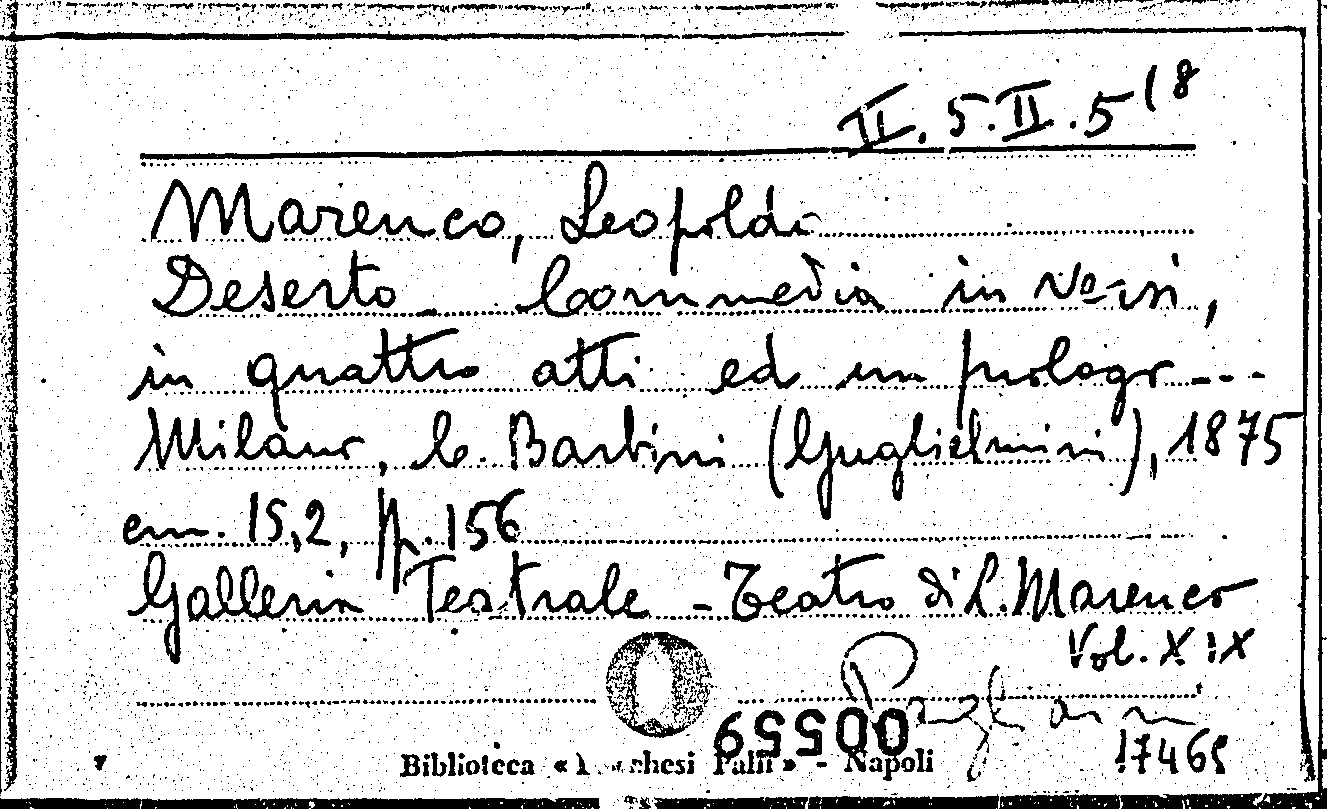 II. 5. II. 5 (8
Marenco, Leopoldo
Deserto _ Commedia in versi,
in quattro atti ed un prologo ---
Milano, C. Barbini (Guglielmini), 1875
cm. 15,2, pp. 156
Galleria Teatrale - Teatro di L. Marenco
Vol. XIX
Pagliara
005559
Biblioteca « » - Napoli